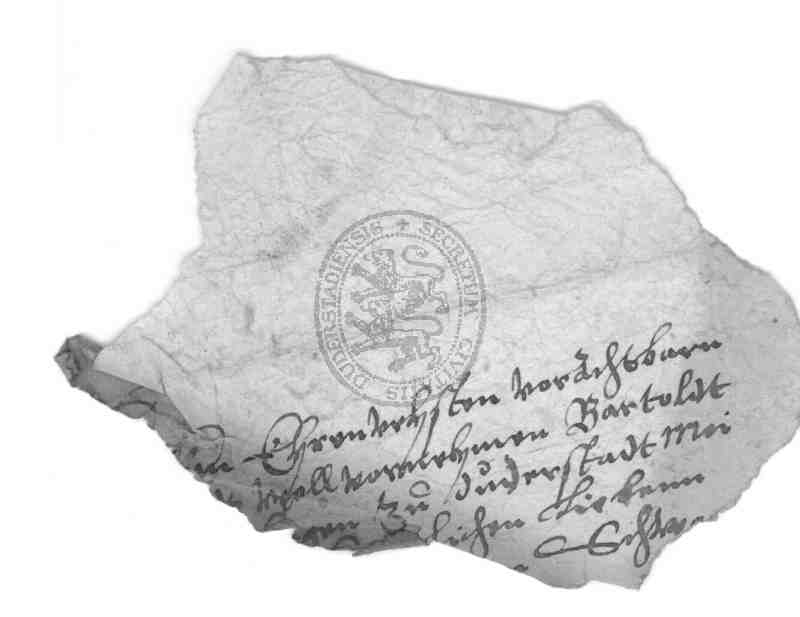 SECRETUM CIVITATIS DUDERSTADIENSIS
Ehrenvehsten vorachtbarn
Woll vornehmen Bartoldt
zu Duderstadt Mei
lichen Lieben
Schw